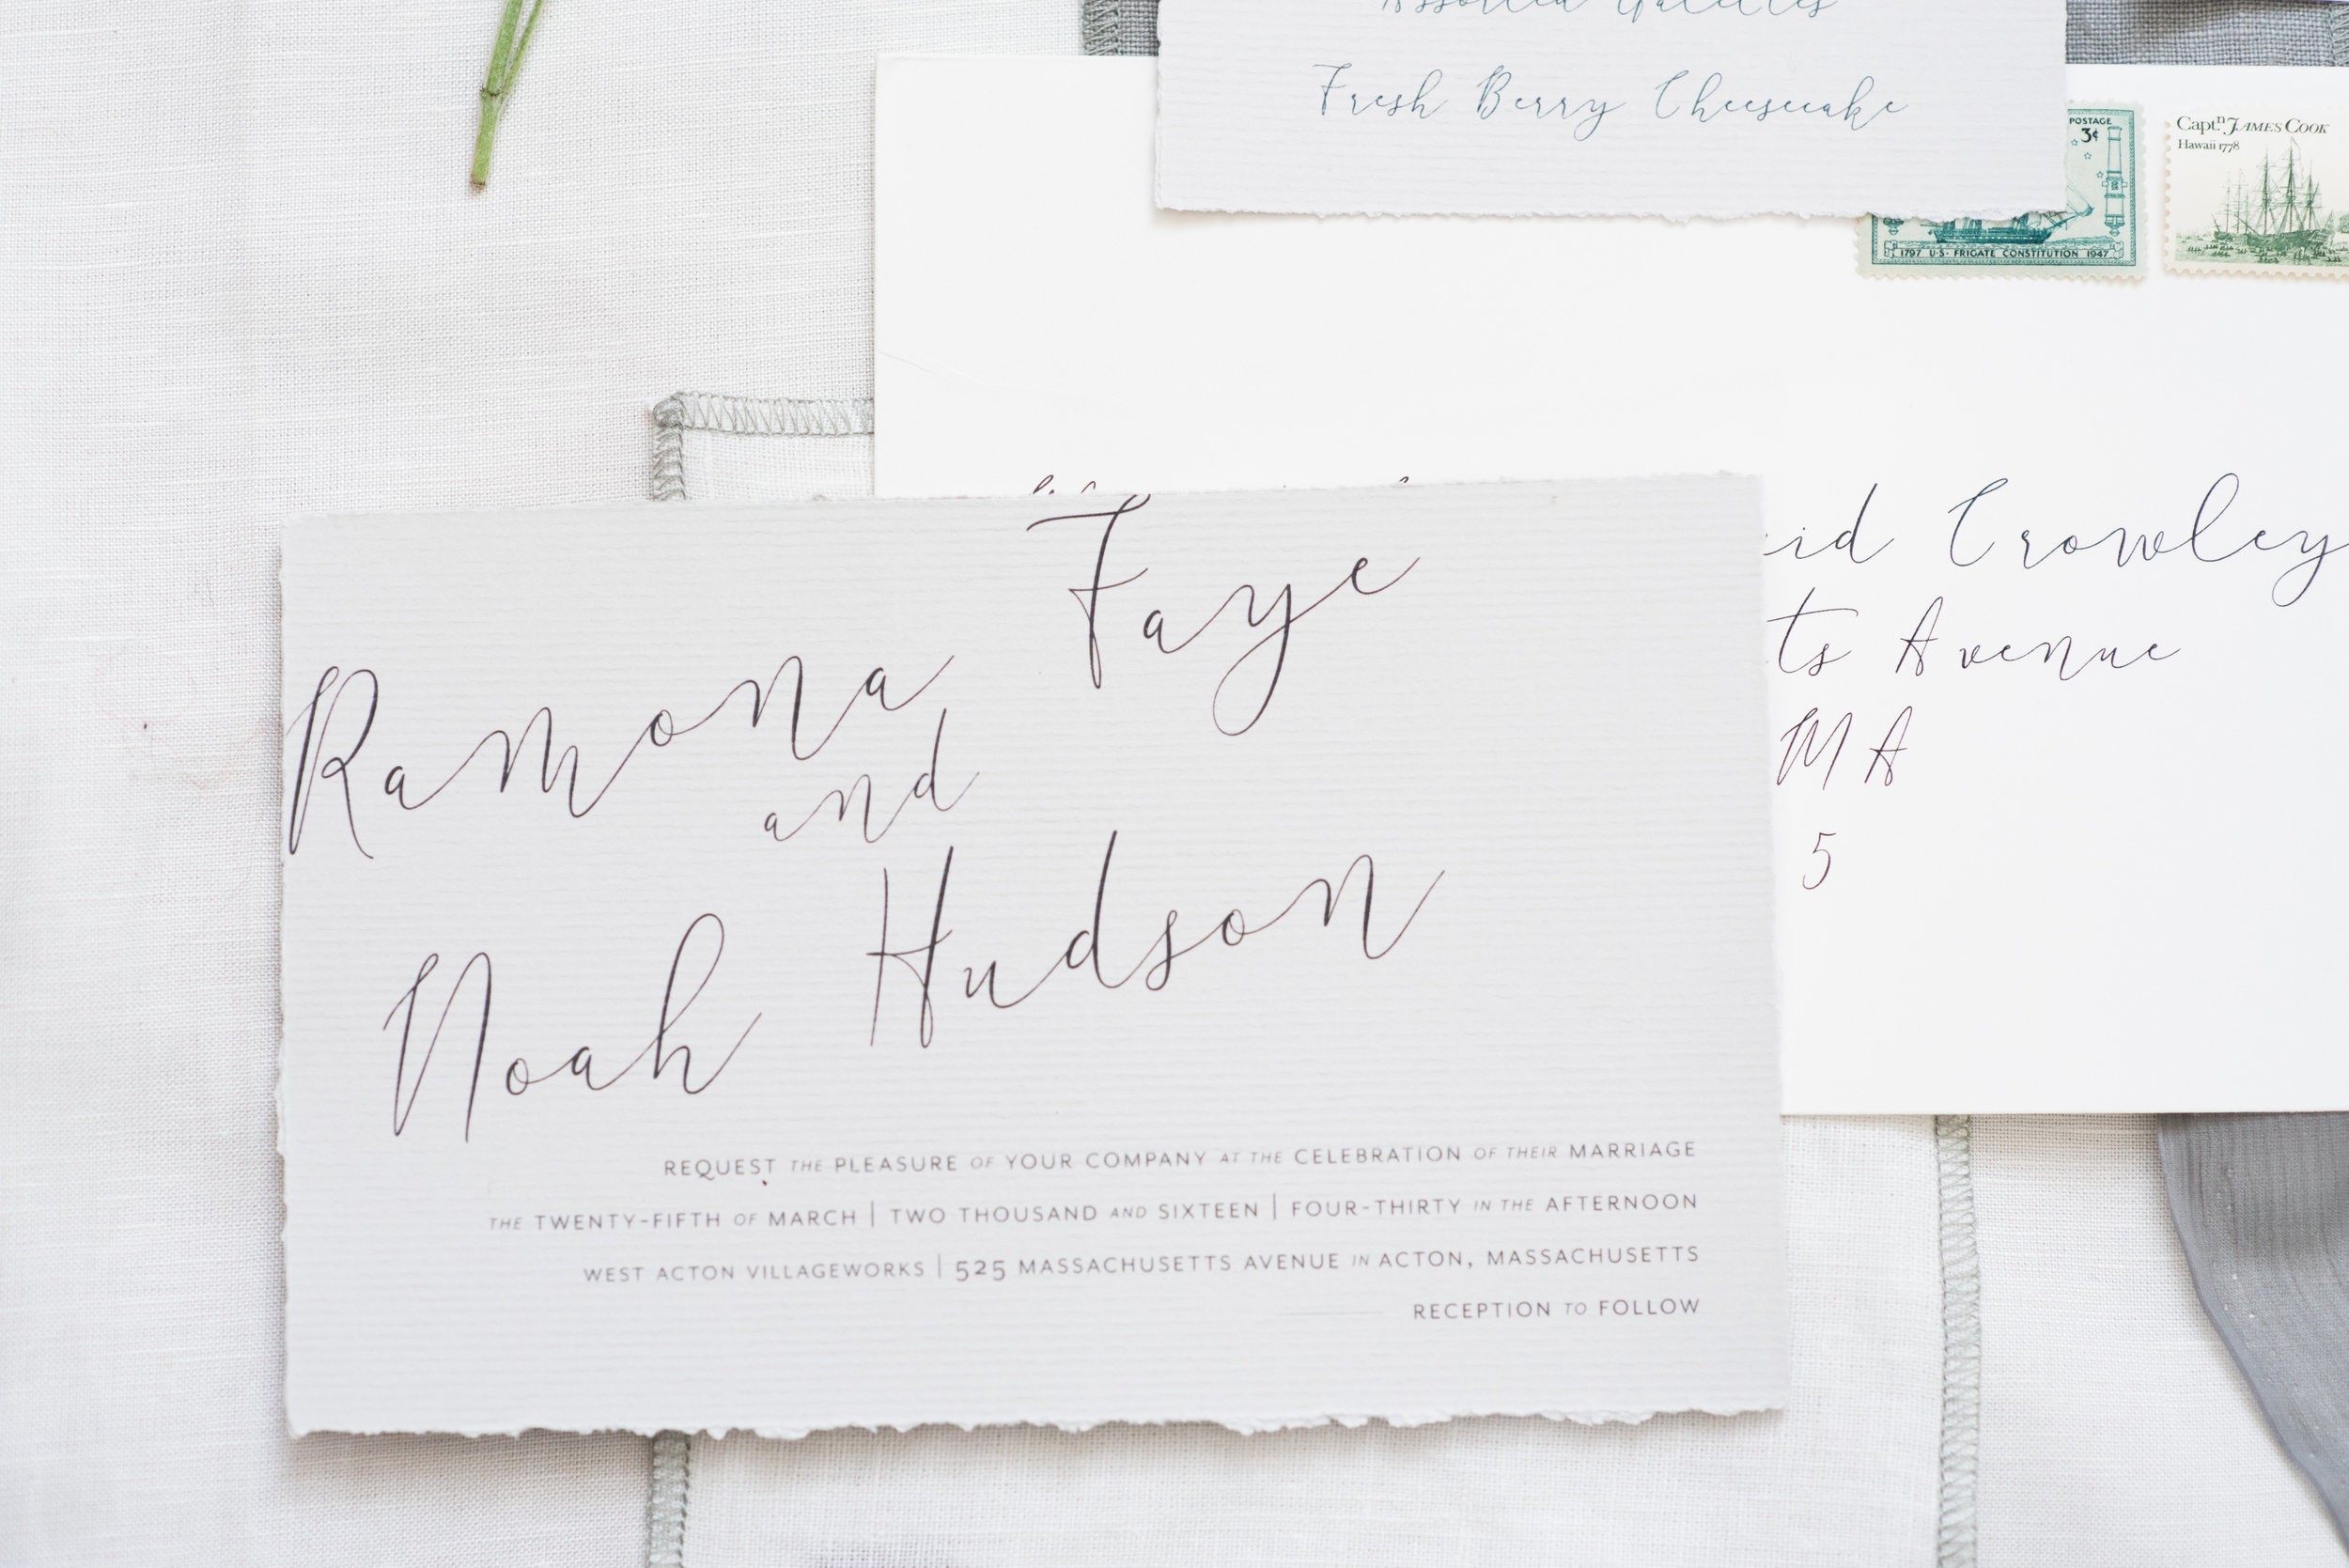 Assorted Galettes
Fresh Berry Cheesecake
POSTAGE
3¢
1797 U·S· FRIGATE CONSTITUTION 1947
Captⁿ JAMES COOK
Hawaii 1778
Crowley
Avenue
MA
5
Ramona Faye
and
Noah Hudson
REQUEST THE PLEASURE OF YOUR COMPANY AT THE CELEBRATION OF THEIR MARRIAGE
THE TWENTY-FIFTH OF MARCH | TWO THOUSAND AND SIXTEEN | FOUR-THIRTY IN THE AFTERNOON
WEST ACTON VILLAGEWORKS | 525 MASSACHUSETTS AVENUE IN ACTON, MASSACHUSETTS
RECEPTION TO FOLLOW